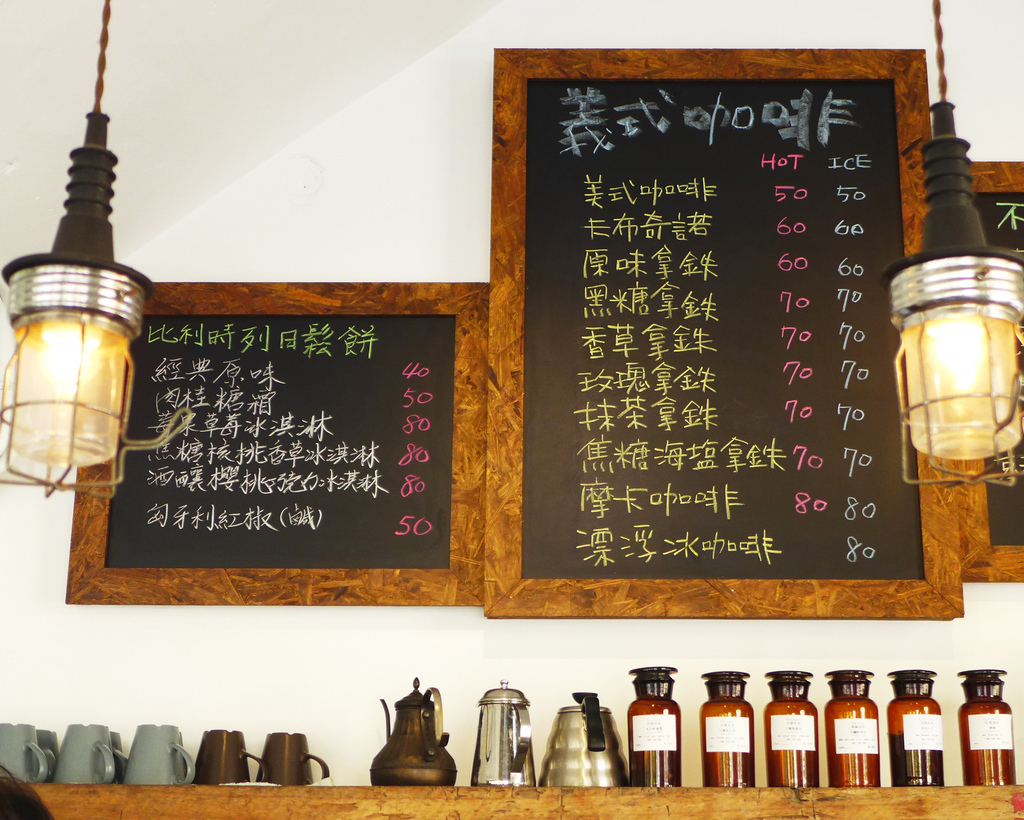 比利時列日鬆餅
經典原味 40
肉桂糖霜 50
蘋果草莓冰淇淋 80
焦糖核桃香草冰淇淋 80
酒釀櫻桃巧克力冰淇淋 80
匈牙利紅椒(鹹) 50
義式咖啡
HOT ICE
美式咖啡 50 50
卡布奇諾 60 60
原味拿鉄 60 60
黑糖拿鉄 70 70
香草拿鉄 70 70
玫瑰拿鉄 70 70
抹茶拿鉄 70 70
焦糖海塩拿鉄 70 70
摩卡咖啡 80 80
漂浮冰咖啡 80
不